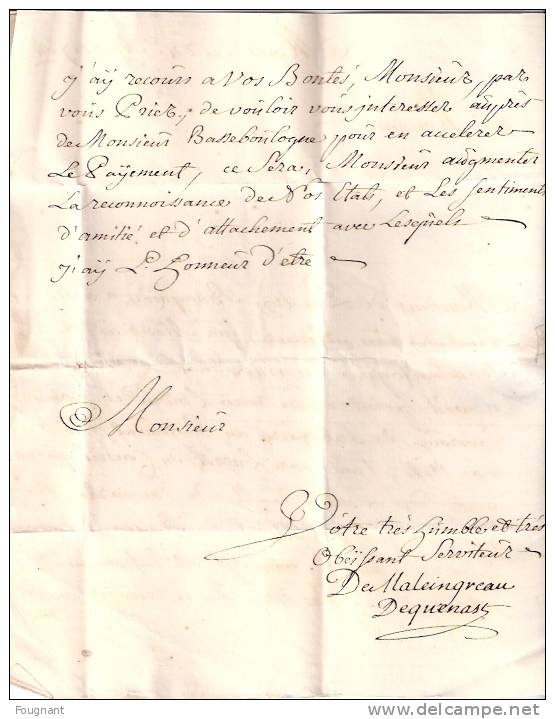 j'aÿ recours a Vos Bontés, Monsieur, par
vous Prier, de vouloir vous interesser auprès
de Monsieur Basseboulogne pour en accelerer
Le Paÿement, ce Sera, Monsieur augmenter
La reconnoissance de Nos Etats, et Les Sentiments
d'amitié et d'attachement avec Lesquels
j'aÿ L'honneur d'etre
Monsieur
Vôtre très humble et très
Obeïssant Serviteur
De Maleingreau
Dequenast
Fougnant
www.delcampe.net